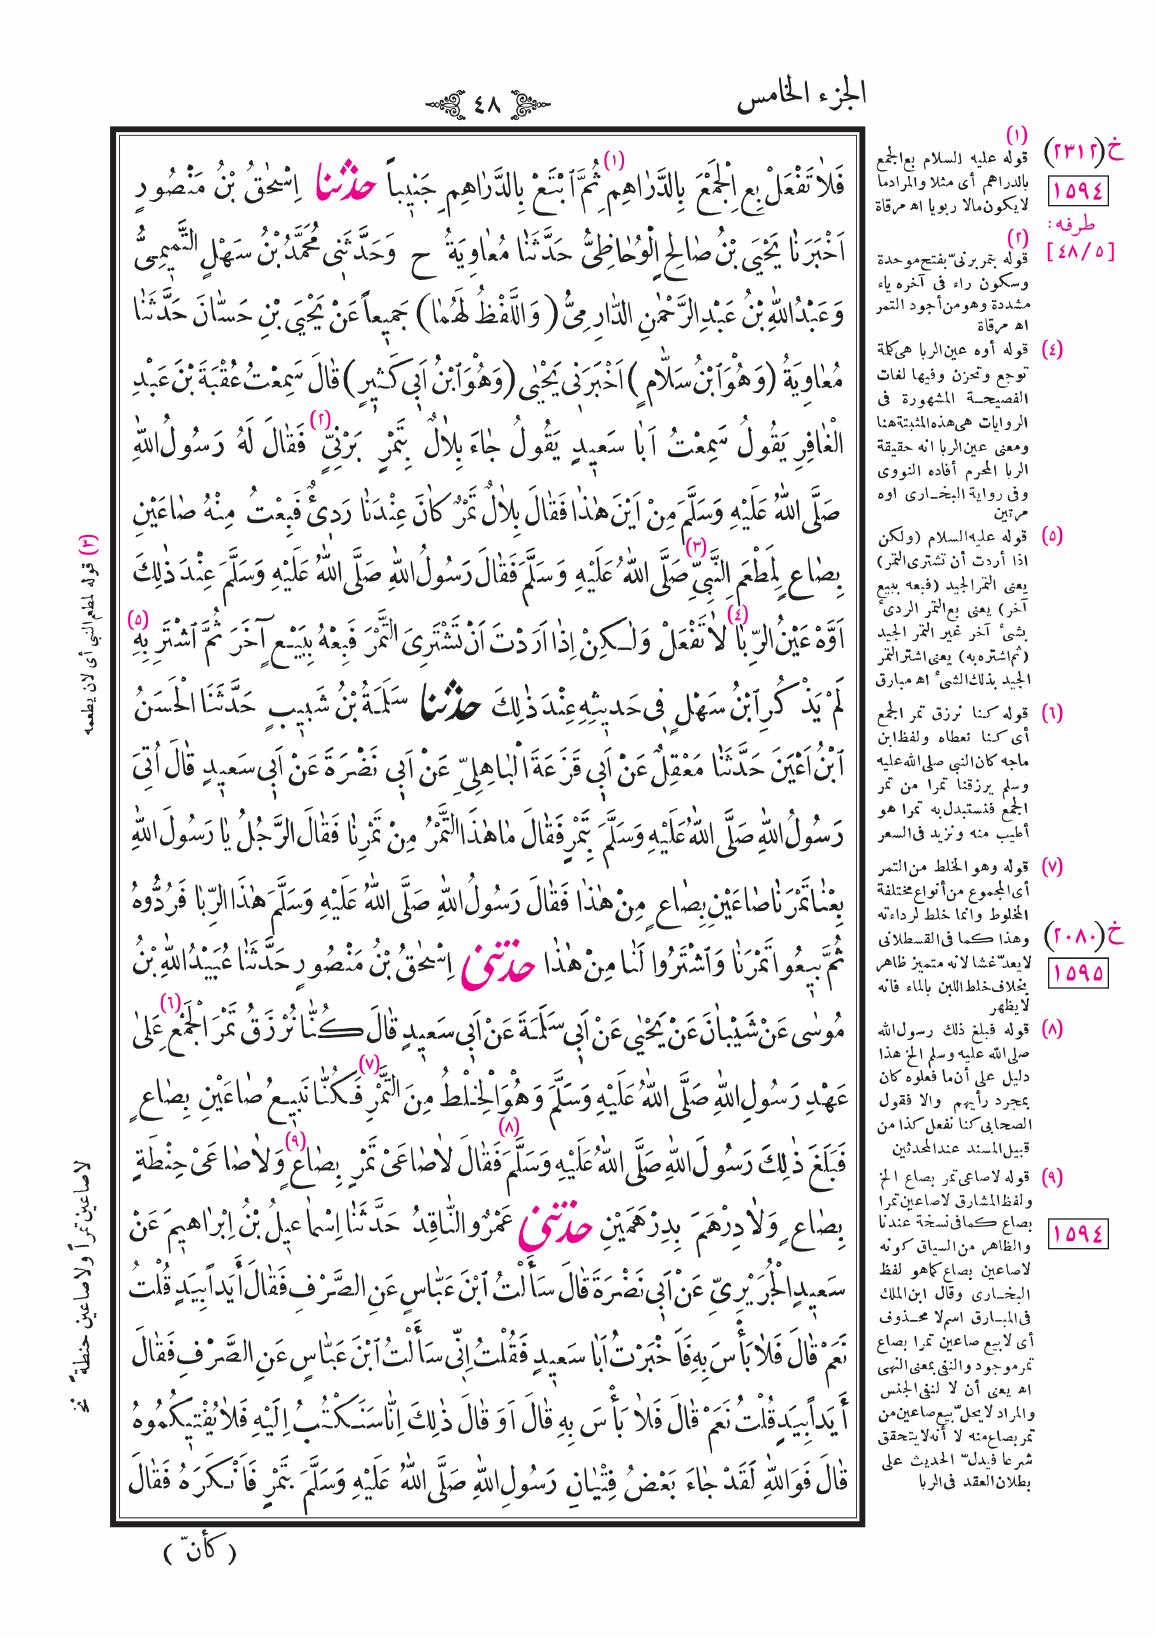 الجزء الخامس
٤٨
فَلَا تَفْعَلْ بِعِ الْجَمْعَ بِالدَّرَاهِمِ (١) ثُمَّ ابْتَعْ بِالدَّرَاهِمِ جَنِيباً حَدَّثَنَا اِسْحٰقُ بْنُ مَنْصُورٍ
اَخْبَرَنَا يَحْيَى بْنُ صَالِحٍ الْوُحَاظِيُّ حَدَّثَنَا مُعَاوِيَةُ ح وَحَدَّثَنِي مُحَمَّدُ بْنُ سَهْلٍ التَّمِيمِيُّ
وَعَبْدُ اللهِ بْنُ عَبْدِ الرَّحْمٰنِ الدَّارِمِيُّ (وَاللَّفْظُ لَهُمَا) جَمِيعاً عَنْ يَحْيَى بْنِ حَسَّانَ حَدَّثَنَا
مُعَاوِيَةُ (وَهُوَ ابْنُ سَلَّامٍ) اَخْبَرَنِي يَحْيٰى (وَهُوَ ابْنُ اَبِي كَثِيرٍ) قَالَ سَمِعْتُ عُقْبَةَ بْنَ عَبْدِ
الْغَافِرِ يَقُولُ سَمِعْتُ اَبَا سَعِيدٍ يَقُولُ جَاءَ بِلَالٌ بِتَمْرٍ بَرْنِيٍّ (٢) فَقَالَ لَهُ رَسُولُ اللهِ
صَلَّى اللهُ عَلَيْهِ وَسَلَّمَ مِنْ اَيْنَ هٰذَا فَقَالَ بِلَالٌ تَمْرٌ كَانَ عِنْدَنَا رَدِيءٌ فَبِعْتُ مِنْهُ صَاعَيْنِ
بِصَاعٍ لِمَطْعَمِ النَّبِيِّ (٣) صَلَّى اللهُ عَلَيْهِ وَسَلَّمَ فَقَالَ رَسُولُ اللهِ صَلَّى اللهُ عَلَيْهِ وَسَلَّمَ عِنْدَ ذٰلِكَ
اَوَّهْ عَيْنُ الرِّبَا (٤) لَا تَفْعَلْ وَلٰكِنْ اِذَا اَرَدْتَ اَنْ تَشْتَرِىَ التَّمْرَ فَبِعْهُ بِبَيْعٍ آخَرَ ثُمَّ اشْتَرِ بِهِ (٥)
لَمْ يَذْكُرِ ابْنُ سَهْلٍ فِي حَدِيثِهِ عِنْدَ ذٰلِكَ حَدَّثَنَا سَلَمَةُ بْنُ شَبِيبٍ حَدَّثَنَا الْحَسَنُ
ابْنُ اَعْيَنَ حَدَّثَنَا مَعْقِلٌ عَنْ اَبِي قَزَعَةَ الْبَاهِلِيِّ عَنْ اَبِي نَضْرَةَ عَنْ اَبِي سَعِيدٍ قَالَ اُتِىَ
رَسُولُ اللهِ صَلَّى اللهُ عَلَيْهِ وَسَلَّمَ بِتَمْرٍ فَقَالَ مَا هٰذَا التَّمْرُ مِنْ تَمْرِنَا فَقَالَ الرَّجُلُ يَا رَسُولَ اللهِ
بِعْنَا تَمْرَنَا صَاعَيْنِ بِصَاعٍ مِنْ هٰذَا فَقَالَ رَسُولُ اللهِ صَلَّى اللهُ عَلَيْهِ وَسَلَّمَ هٰذَا الرِّبَا فَرُدُّوهُ
ثُمَّ بِيعُوا تَمْرَنَا وَاشْتَرُوا لَنَا مِنْ هٰذَا حَدَّثَنِي اِسْحٰقُ بْنُ مَنْصُورٍ حَدَّثَنَا عُبَيْدُ اللهِ بْنُ
مُوسٰى عَنْ شَيْبَانَ عَنْ يَحْيٰى عَنْ اَبِي سَلَمَةَ عَنْ اَبِي سَعِيدٍ قَالَ كُنَّا نُرْزَقُ تَمْرَ الْجَمْعِ (٦) عَلىٰ
عَهْدِ رَسُولِ اللهِ صَلَّى اللهُ عَلَيْهِ وَسَلَّمَ وَهُوَ الْخِلْطُ مِنَ التَّمْرِ (٧) فَكُنَّا نَبِيعُ صَاعَيْنِ بِصَاعٍ
فَبَلَغَ ذٰلِكَ رَسُولَ اللهِ صَلَّى اللهُ عَلَيْهِ وَسَلَّمَ (٨) فَقَالَ لَا صَاعَىْ تَمْرٍ بِصَاعٍ (٩) وَلَا صَاعَىْ حِنْطَةٍ
بِصَاعٍ وَلَا دِرْهَمَ بِدِرْهَمَيْنِ حَدَّثَنِي عَمْرٌو النَّاقِدُ حَدَّثَنَا اِسْمَاعِيلُ بْنُ اِبْرَاهِيمَ عَنْ
سَعِيدٍ الْجُرَيْرِيِّ عَنْ اَبِي نَضْرَةَ قَالَ سَأَلْتُ ابْنَ عَبَّاسٍ عَنِ الصَّرْفِ فَقَالَ أَيَداً بِيَدٍ قُلْتُ
نَعَمْ قَالَ فَلَا بَأْسَ بِهِ فَاَخْبَرْتُ اَبَا سَعِيدٍ فَقُلْتُ اِنِّي سَأَلْتُ ابْنَ عَبَّاسٍ عَنِ الصَّرْفِ فَقَالَ
أَيَداً بِيَدٍ قُلْتُ نَعَمْ قَالَ فَلَا بَأْسَ بِهِ قَالَ اَوَ قَالَ ذٰلِكَ اِنَّا سَنَكْتُبُ اِلَيْهِ فَلَا يُفْتِيكُمُوهُ
قَالَ فَوَاللهِ لَقَدْ جَاءَ بَعْضُ فِتْيَانِ رَسُولِ اللهِ صَلَّى اللهُ عَلَيْهِ وَسَلَّمَ بِتَمْرٍ فَاَنْكَرَهُ فَقَالَ
(كأنّ)
خ (٢٣١٢)
١٥٩٤
طرفه:
[٤٨/٥]
(١)
قوله عليه السلام بع الجمع
بالدراهم أى مثلا والمراد ما
لا يكون مالا ربويا اه مرقاة
(٢)
قوله بتمر برنىّ بفتح موحدة
وسكون راء فى آخره ياء
مشددة وهو من أجود التمر
اه مرقاة
(٤) قوله أوه عين الربا هى كلة
توجع وتحزن وفيها لغات
الفصيحة المشهورة فى
الروايات هى هذه المثبتة هنا
ومعنى عين الربا انه حقيقة
الربا المحرم أفاده النووى
وفى رواية البخارى اوه
مرتين
(٥) قوله عليه السلام (ولكن
اذا أردت أن تشترى التمر)
يعنى التمر الجيد (فبعه ببيع
آخر) يعنى بع التمر الردىء
بشىء آخر غير التمر الجيد
(ثم اشتر به) يعنى اشتر التمر
الجيد بذلك الشىء اه مبارق
(٦) قوله كنا نرزق تمر الجمع
أى كنا نعطاه ولفظ ابن
ماجه كان النبى صلى الله عليه
وسلم يرزقنا تمرا من تمر
الجمع فنستبدل به تمرا هو
أطيب منه ونزيد فى السعر
(٧) قوله وهو الخلط من التمر
أى المجموع من أنواع مختلفة
المخلوط وانما خلط لرداءته
وهذا كما فى القسطلانى
لا يعدّ غشا لانه متميز ظاهر
بخلاف خلط اللبن بالماء فانه
لا يظهر
خ (٢٠٨٠)
١٥٩٥
(٨) قوله فبلغ ذلك رسول الله
صلى الله عليه وسلم الخ هذا
دليل على أن ما فعلوه كان
بمجرد رأيهم والا فقول
الصحابى كنا نفعل كذا من
قبيل المسند عند المحدثين
(٩) قوله لا صاعى تمر بصاع الخ
ولفظ المشارق لا صاعين تمرا
بصاع كما فى نسخة عندنا
والظاهر من السياق كونه
لا صاعين بصاع كما هو لفظ
البخارى وقال ابن الملك
فى المبارق اسم لا محذوف
أى لا بيع صاعين تمرا بصاع
تمر موجود والنفى بمعنى النهى
اه يعنى أن لا لنفى الجنس
والمراد لا يحلّ بيع صاعين من
تمر بصاع منه لا أنه لا يتحقق
شرعا فيدلّ الحديث على
بطلان العقد فى الربا
١٥٩٤
(٣) قوله لمطعم النبى أى لان يطعمه
لا صاعين تمرا ولا صاعين حنطة نخ